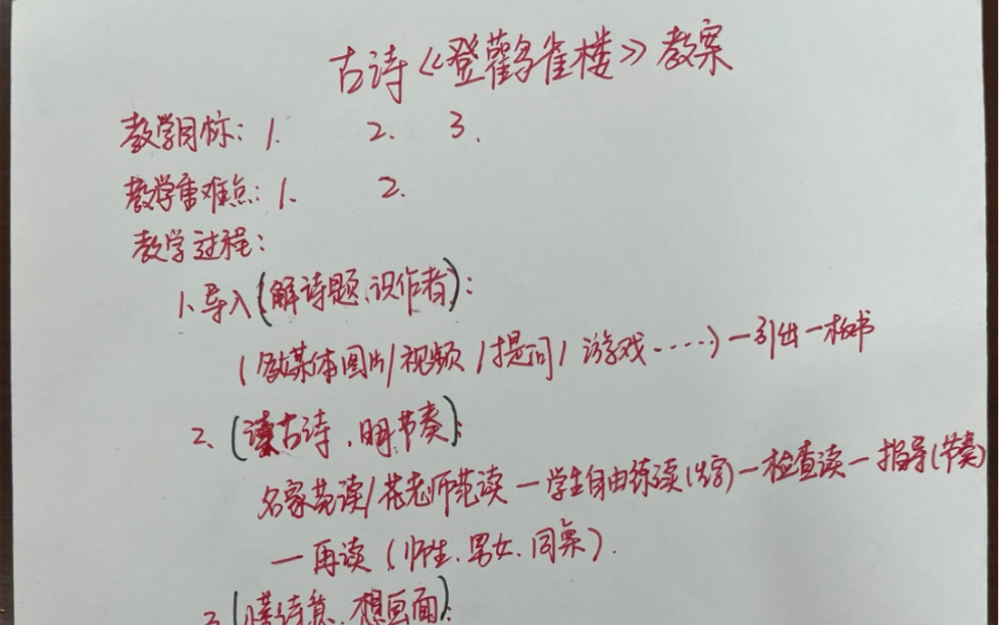 古诗《登鹳雀楼》教案
教学目标：1. 2. 3.
教学重难点：1. 2.
教学过程：
1、导入(解诗题、识作者)：
(多媒体图片/视频/提问/游戏……)—引出—板书
2、(读古诗、明节奏)：
名家范读/范老师范读—学生自由练读(生字)—检查读—指导(节奏)
—再读(师生、男女、同桌).
3、(懂诗意、想画面)：